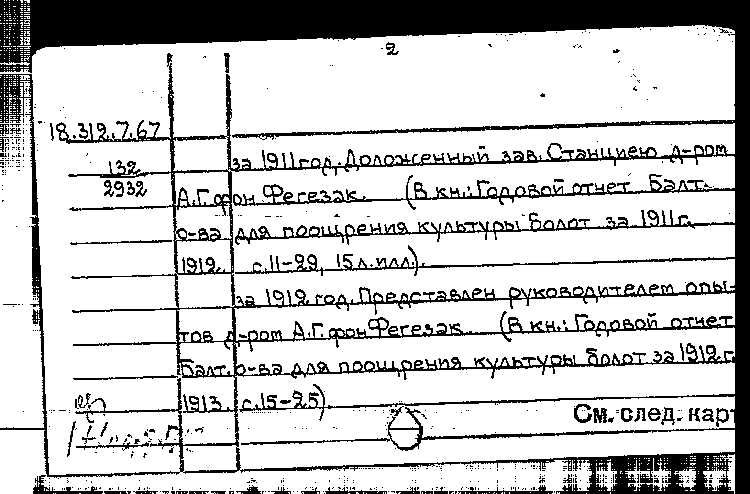 2
18.312.7.67
132
2932
за 1911 год. Доложенный зав. Станциею д-ром
А.Г.фон Фегезак. (В кн.: Годовой отчет Балт.
о-ва для поощрения культуры болот за 1911 г.
1912. с.11-29, 15 л. илл).
за 1912 год. Представлен руководителем опы-
тов д-ром А.Г.фон Фегезак. (В кн.: Годовой отчет
Балт. о-ва для поощрения культуры болот за 1912 г.
1913. с.15-25)
См. след. карт